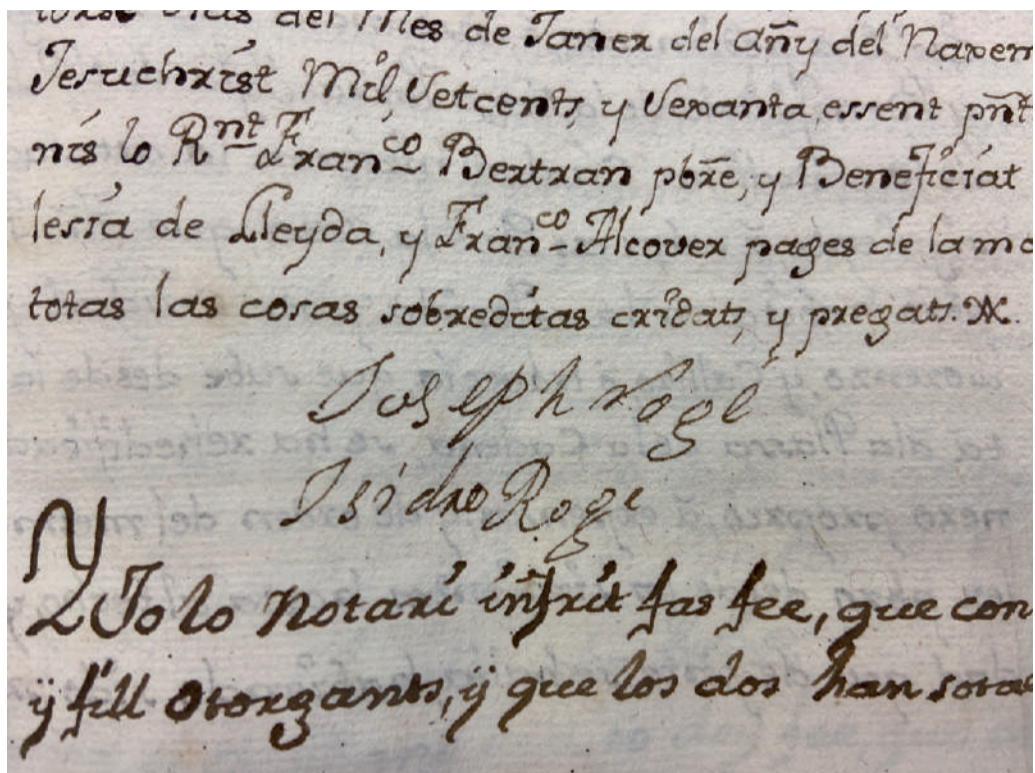 dias del Mes de Janer del añy del Naxem
Jesuchrist Mil Setcents, y Sexanta, essent pñt
nis lo Rnt Franco Bertran pbre, y Beneficiat
lesia de Lleyda, y Franco Alcover pages de la ma
totas las cosas sobreditas cridats, y pregats.
Joseph Rogé
Isidro Roge
Y Jo lo Notari infrit fas fee, que con
ÿ fill otorgants, ÿ que los dos han sotas